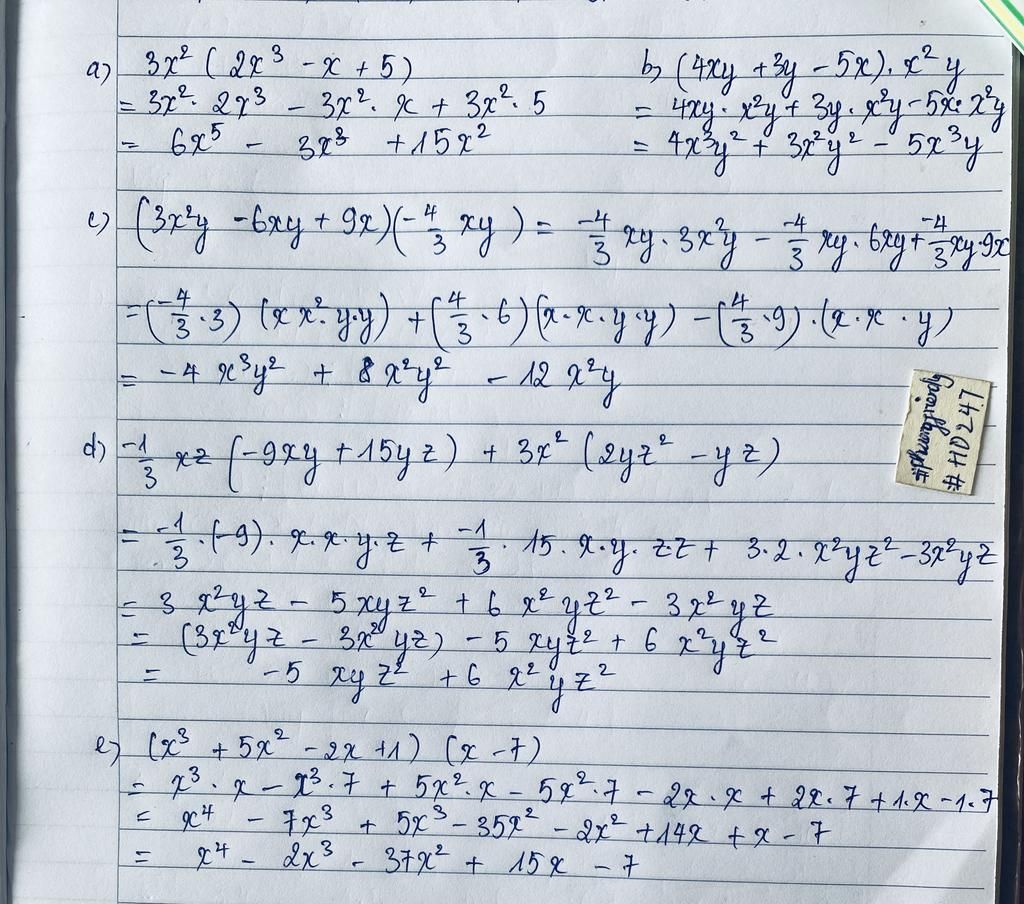 a) 3x² (2x³ - x + 5)
= 3x² · 2x³ - 3x² · x + 3x² · 5
= 6x⁵ - 3x³ + 15x²
b) (4xy + 3y - 5x) · x² y
= 4xy · x²y + 3y · x²y - 5x · x²y
= 4x³y² + 3x²y² - 5x³y
c) (3x²y - 6xy + 9x)(-4/3 xy) = -4/3 xy · 3x²y - -4/3 xy · 6xy + -4/3 xy · 9x
= (-4/3 · 3) (x x² · y · y) + (4/3 · 6) (x · x · y · y) - (4/3 · 9) · (x · x · y)
= -4 x³y² + 8 x²y² - 12 x²y
d) -1/3 xz (-9xy + 15yz) + 3x² (2yz² - yz)
= -1/3 · (-9) · x · x · y · z + -1/3 · 15 · x · y · z · z + 3 · 2 · x²yz² - 3x²yz
= 3 x²yz - 5xyz² + 6 x² yz² - 3x² yz
= (3x²yz - 3x² yz) - 5 xyz² + 6 x²yz²
= -5 xyz² + 6 x² yz²
e) (x³ + 5x² - 2x + 1) (x - 7)
= x³ · x - x³ · 7 + 5x² · x - 5x² · 7 - 2x · x + 2x · 7 + 1 · x - 1 · 7
= x⁴ - 7x³ + 5x³ - 35x² - 2x² + 14x + x - 7
= x⁴ - 2x³ - 37x² + 15x - 7
# HD247